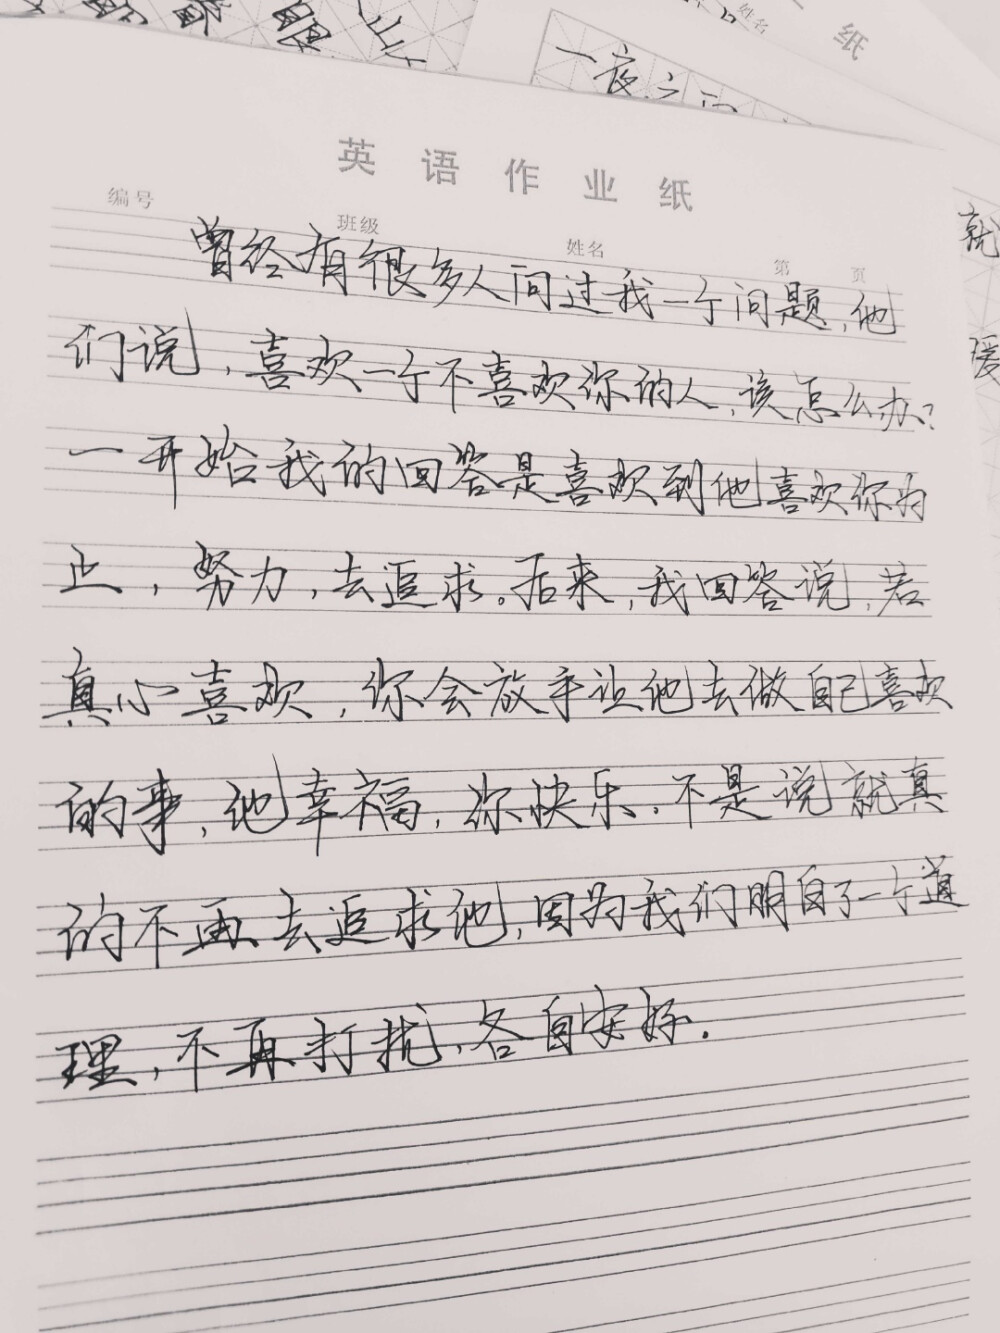 纸
姓名
一夜之间
就
瑷
英语作业纸
编号 班级 姓名 第 页
曾经有很多人问过我一个问题,他
们说,喜欢一个不喜欢你的人,该怎么办?
一开始我的回答是喜欢到他喜欢你为
止,努力,去追求。后来,我回答说,若
真心喜欢,你会放手让他去做自己喜欢
的事,他幸福,你快乐.不是说就真
的不再去追求他,因为我们明白了一个道
理,不再打扰,各自安好.